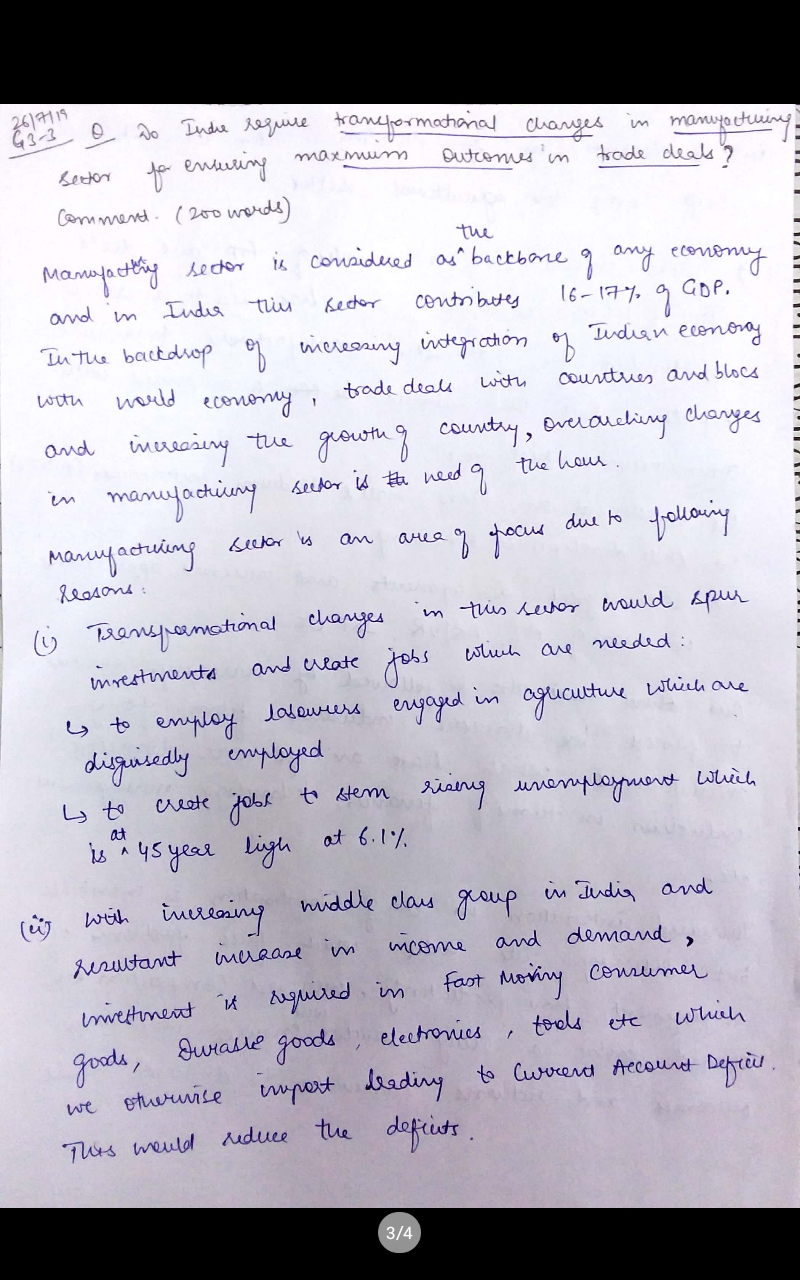 26/7/19
G3-3 Q Do India require transformational changes in manufacturing
sector for ensuring maxmium outcomes in trade deals?
Comment. (200 words)
the
Manufacturing sector is considered as ^ backbone of any economy
and in India this sector contributes 16-17% of GDP.
In the backdrop of increasing integration of Indian economy
with world economy, trade deals with countries and blocs
and increasing the growth of country, overarching changes
in manufacturing sector is the need of the hour.
Manufacturing sector is an area of focus due to following
reasons:
(i) Transformational changes in this sector would spur
investments and create jobs which are needed:
↳ to employ labourers engaged in agriculture which are
disguisedly employed
↳ to create jobs to stem rising unemployment which
is ^at 45 year high at 6.1%.
(ii) With increasing middle class group in India and
resultant increase in income and demand,
investment is required in Fast Moving Consumer
goods, Durable goods, electronics, tools etc which
we otherwise import leading to Current Account Deficit.
This would reduce the deficits.
3/4